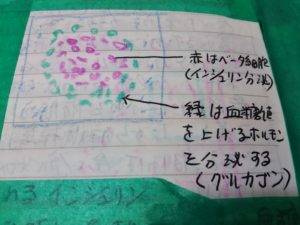 赤はベータ細胞
(インシュリン分泌)
緑は血糖値
を上げるホルモン
を分泌する
(グルカゴン)
インシュリン